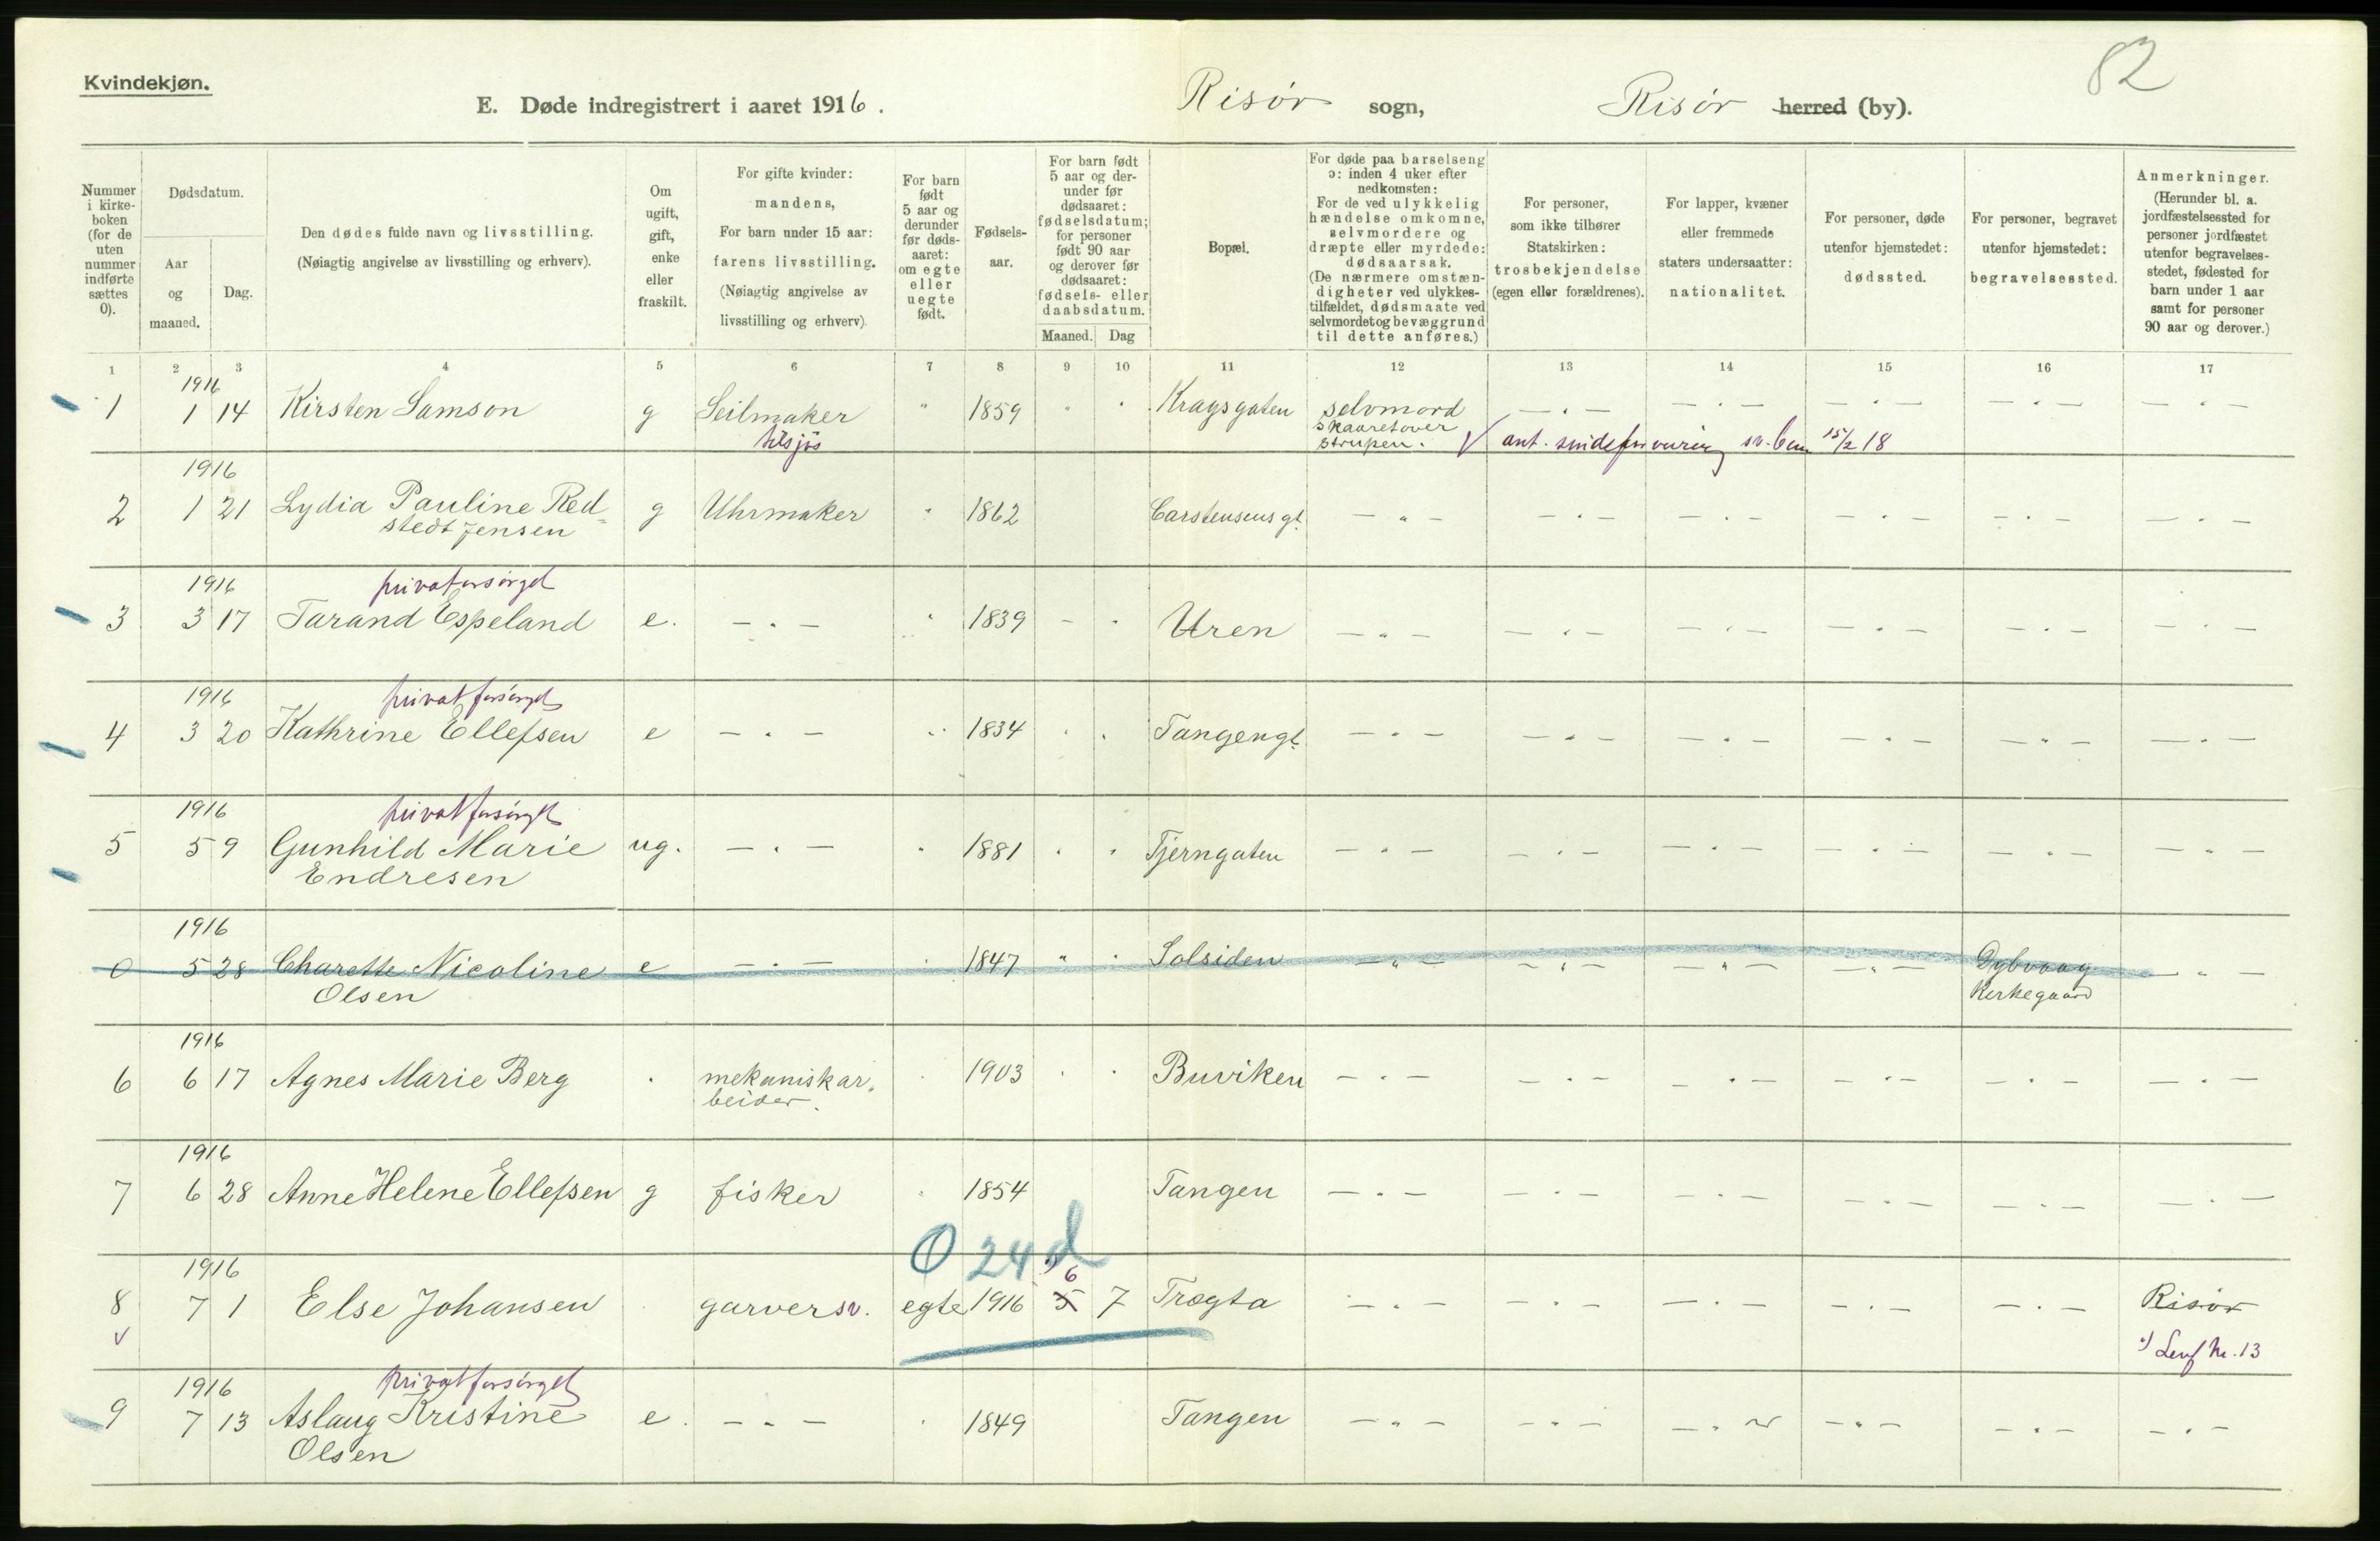 82
Kvindekjøn.
E. Døde indregistrert i aaret 1916. Risør sogn, Risør herred (by).
Nummer i kirkeboken (for de uten nummer indførte sættes 0).
Dødsdatum.
Aar og maaned.
Dag.
Den dødes fulde navn og livsstilling.
(Nøiagtig angivelse av livsstilling og erhverv).
Om ugift, gift, enke eller fraskilt.
For gifte kvinder: mandens, For barn under 15 aar: farens livsstilling. (Nøiagtig angivelse av livsstilling og erhverv).
For barn født 5 aar og derunder før dødsaaret: om egte eller uegte født.
Fødselsaar.
For barn født 5 aar og derunder før dødsaaret: fødselsdatum; for personer født 90 aar og derover før dødsaaret: fødsels- eller daabsdatum.
Maaned. Dag
Bopæl.
For døde paa barselseng ɔ: inden 4 uker efter nedkomsten: For de ved ulykkelig hændelse omkomne, selvmordere og dræpte eller myrdede: dødsaarsak. (De nærmere omstændigheter ved ulykkestilfældet, dødsmaate ved selvmordet og bevæggrund til dette anføres.)
For personer, som ikke tilhører Statskirken: trosbekjendelse (egen eller forældrenes).
For lapper, kvæner eller fremmede staters undersaatter: nationalitet.
For personer, døde utenfor hjemstedet: dødssted.
For personer, begravet utenfor hjemstedet: begravelsessted.
Anmerkninger. (Herunder bl. a. jordfæstelsessted for personer jordfæstet utenfor begravelsesstedet, fødested for barn under 1 aar samt for personer 90 aar og derover.)
1 2 3 4 5 6 7 8 9 10 11 12 13 14 15 16 17
1916
1 1 14 Kirsten Samson g Seilmaker " 1859 " " Kragsgaten selvmord — " — — " — — " — — " — — " —
tilsjøs skaaret over
strupen. √ ant. sindsforvirring sv. 15/2 18
1916
2 1 21 Lydia Pauline Red= g Uhrmaker " 1862 Carstensens gt. — " — — " — — " — — " — — " — — " —
stedt Jensen
1916 privatforsørget
3 3 17 Tarand Espeland e. — " — " 1839 – " Uren — " — — " — — " — — " — — " — — " —
1916 privat forsørget
4 3 20 Kathrine Ellefsen e — " — " 1834 " " Tangengt. — " — — " — — " — — " — — " — — " —
1916 privat forsørget
5 5 9 Gunhild Marie ug. — " — " 1881 " " Tjerngaten — " — — " — — " — — " — — " — — " —
Endresen
1916
0 5 28 Charette Nicoline e — " — " 1847 " " Solsiden — " — — " — — " — — " — Dybvaag — " —
Olsen Kirkegaard
1916
6 6 17 Agnes Marie Berg " mekanisk ar= " 1903 " " Buviken — " — — " — — " — — " — — " — — " —
beider.
1916
7 6 28 Anne Helene Ellefsen g fisker " 1854 Tangen — " — — " — — " — — " — — " — — " —
0 24 d
1916 6
8 7 1 Else Johansen garversv. egte 1916 5 7 Trægta — " — — " — — " — — " — — " — Risør
√ nr. 13
1916 privat forsørget
9 7 13 Aslaug Kristine e. — " — " 1849 Tangen — " — — " — — " — — " — — " — — " —
Olsen